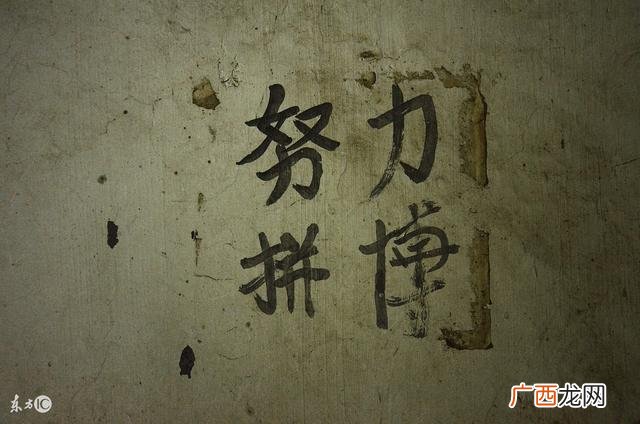 努力
拼博
东方IC
广西龙网